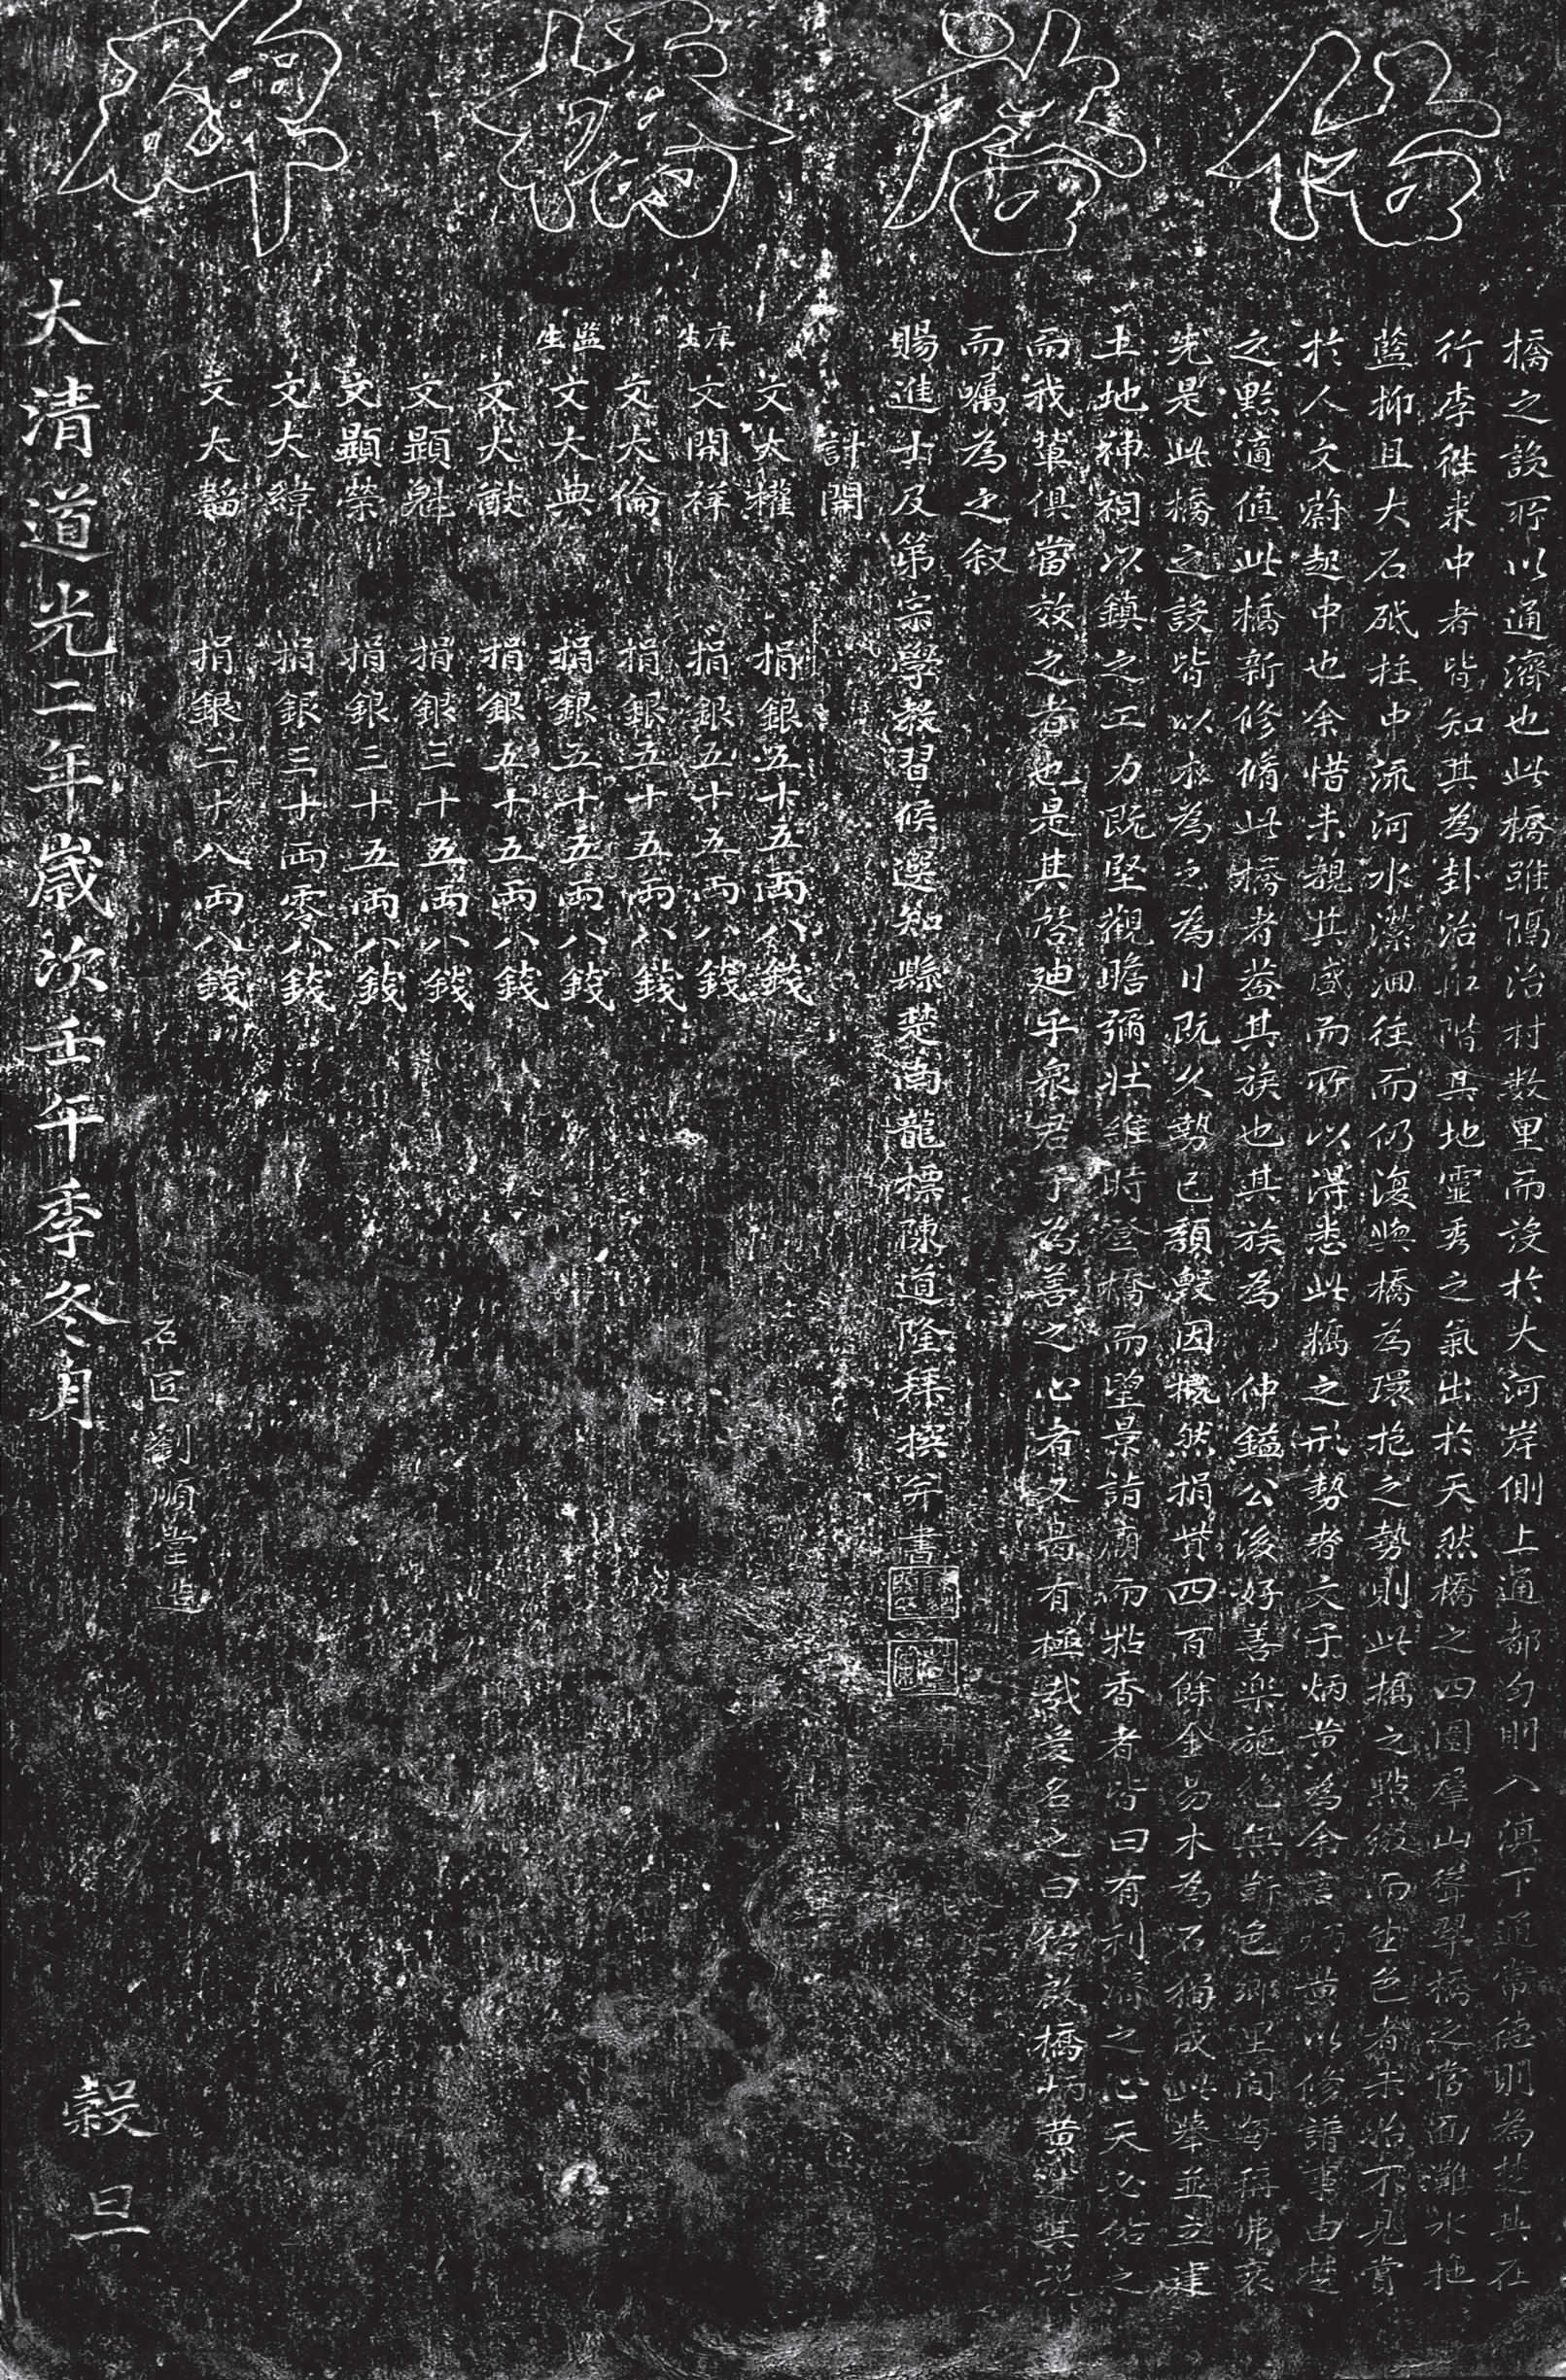 佑啟橋碑
橋之設所以通濟也此橋雖隔治村数里而設於大河岸側上通都勻則入滇下通常德則為楚其在
行李徃来中者皆知其為卦治江階其地靈秀之氣出於天然橋之四圍羣山聳翠橋之當面灘水地
藍抑且大石砥柱中流河水瀠洄往而仍復與橋為環抱之勢則此橋之點綴而生色者未始不見賞
於人文蔚起中也余惜未覩其盛而所以得悉此橋之形勢者文子炳黄為余言炳黄以修譜事由楚
之黔適值此橋新修脩此橋者益其族也其族為 仲鎰公後好善樂施絶無靳色鄉里間每稱弗衰
先是此橋之設皆以木為之為日既久勢已頹毀因概然捐貲四百餘金易木為石獨成此舉並立建
土地神祠以鎮之工力既堅觀瞻彌壯維時登橋而望景詣廟而拈香者皆曰有利濟之心天必佑之
而我輩俱當效之者也是其啓廸乎衆君子為善之心者又曷有極哉爰名之曰佑啟橋炳黄述其說
而囑為之叙
賜進士及第宗學教習候選知縣楚南龍標陳道隆拜撰并書
計開
文大權 捐銀五十五両八錢
庠生 文開祥 捐銀五十五両八錢
文大倫 捐銀五十五両八錢
監生 文大典 捐銀五十五両八錢
文大猷 捐銀五十五両八錢
文顯魁 捐銀三十五両八錢
文顯榮 捐銀三十五両八錢
文大緯 捐銀三十両零八錢
文大韜 捐銀二十八両八錢
石匠劉順堂造
大清道光二年歲次壬午季冬月 穀旦